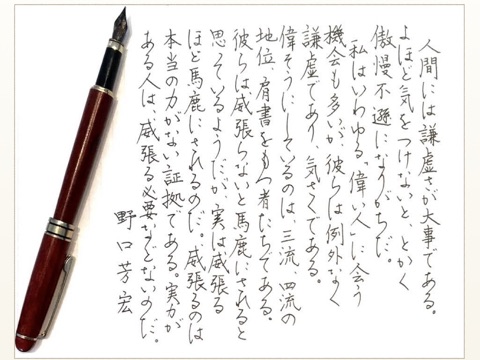 人間には謙虚さが大事である。
よほど気をつけないと、とかく
傲慢不遜になりがちだ。
私はいわゆる「偉い人」に会う
機会も多いが、彼らは例外なく
謙虚であり、気さくである。
偉そうにしているのは、三流、四流の
地位、肩書をもつ者たちである。
彼らは威張らないと馬鹿にされると
思っているようだが、実は威張る
ほど馬鹿にされるのだ。威張るのは
本当の力がない証拠である。実力が
ある人は、威張る必要などないのだ。
野口芳宏